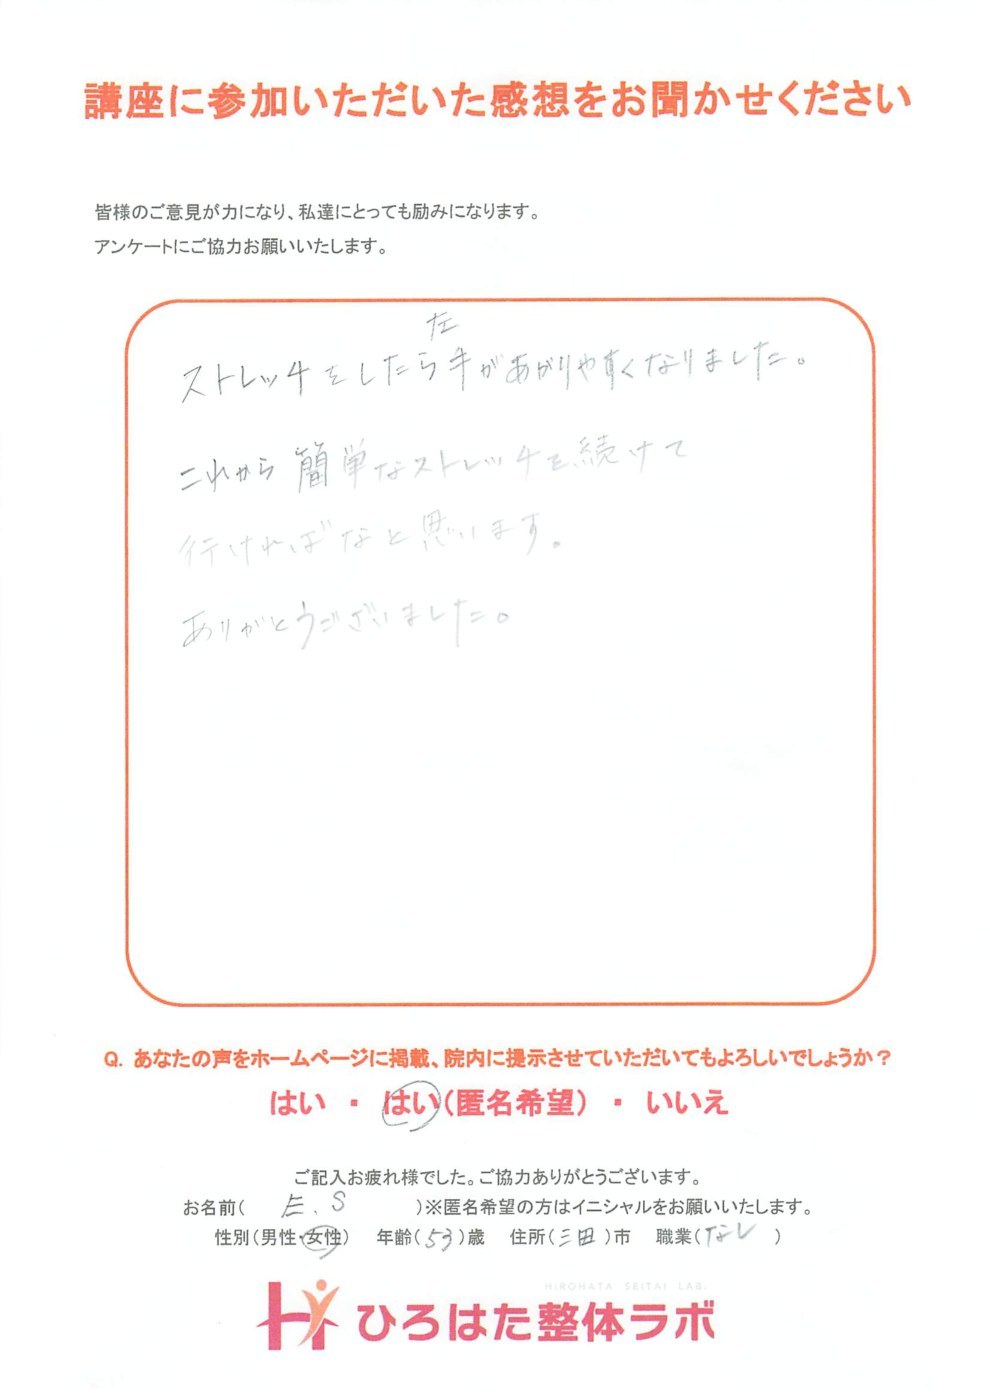 講座に参加いただいた感想をお聞かせください
皆様のご意見が力になり、私達にとっても励みになります。
アンケートにご協力お願いいたします。
左
ストレッチをしたら手があがりやすくなりました。
これから簡単なストレッチを続けて
行ければなと思います。
ありがとうございました。
Q. あなたの声をホームページに掲載、院内に提示させていただいてもよろしいでしょうか？
はい ・ はい(匿名希望) ・ いいえ
ご記入お疲れ様でした。ご協力ありがとうございます。
お名前( E.S )※匿名希望の方はイニシャルをお願いいたします。
性別(男性・女性) 年齢(53)歳 住所(三田)市 職業(なし)
HIROHATA SEITAI LAB.
ひろはた整体ラボ